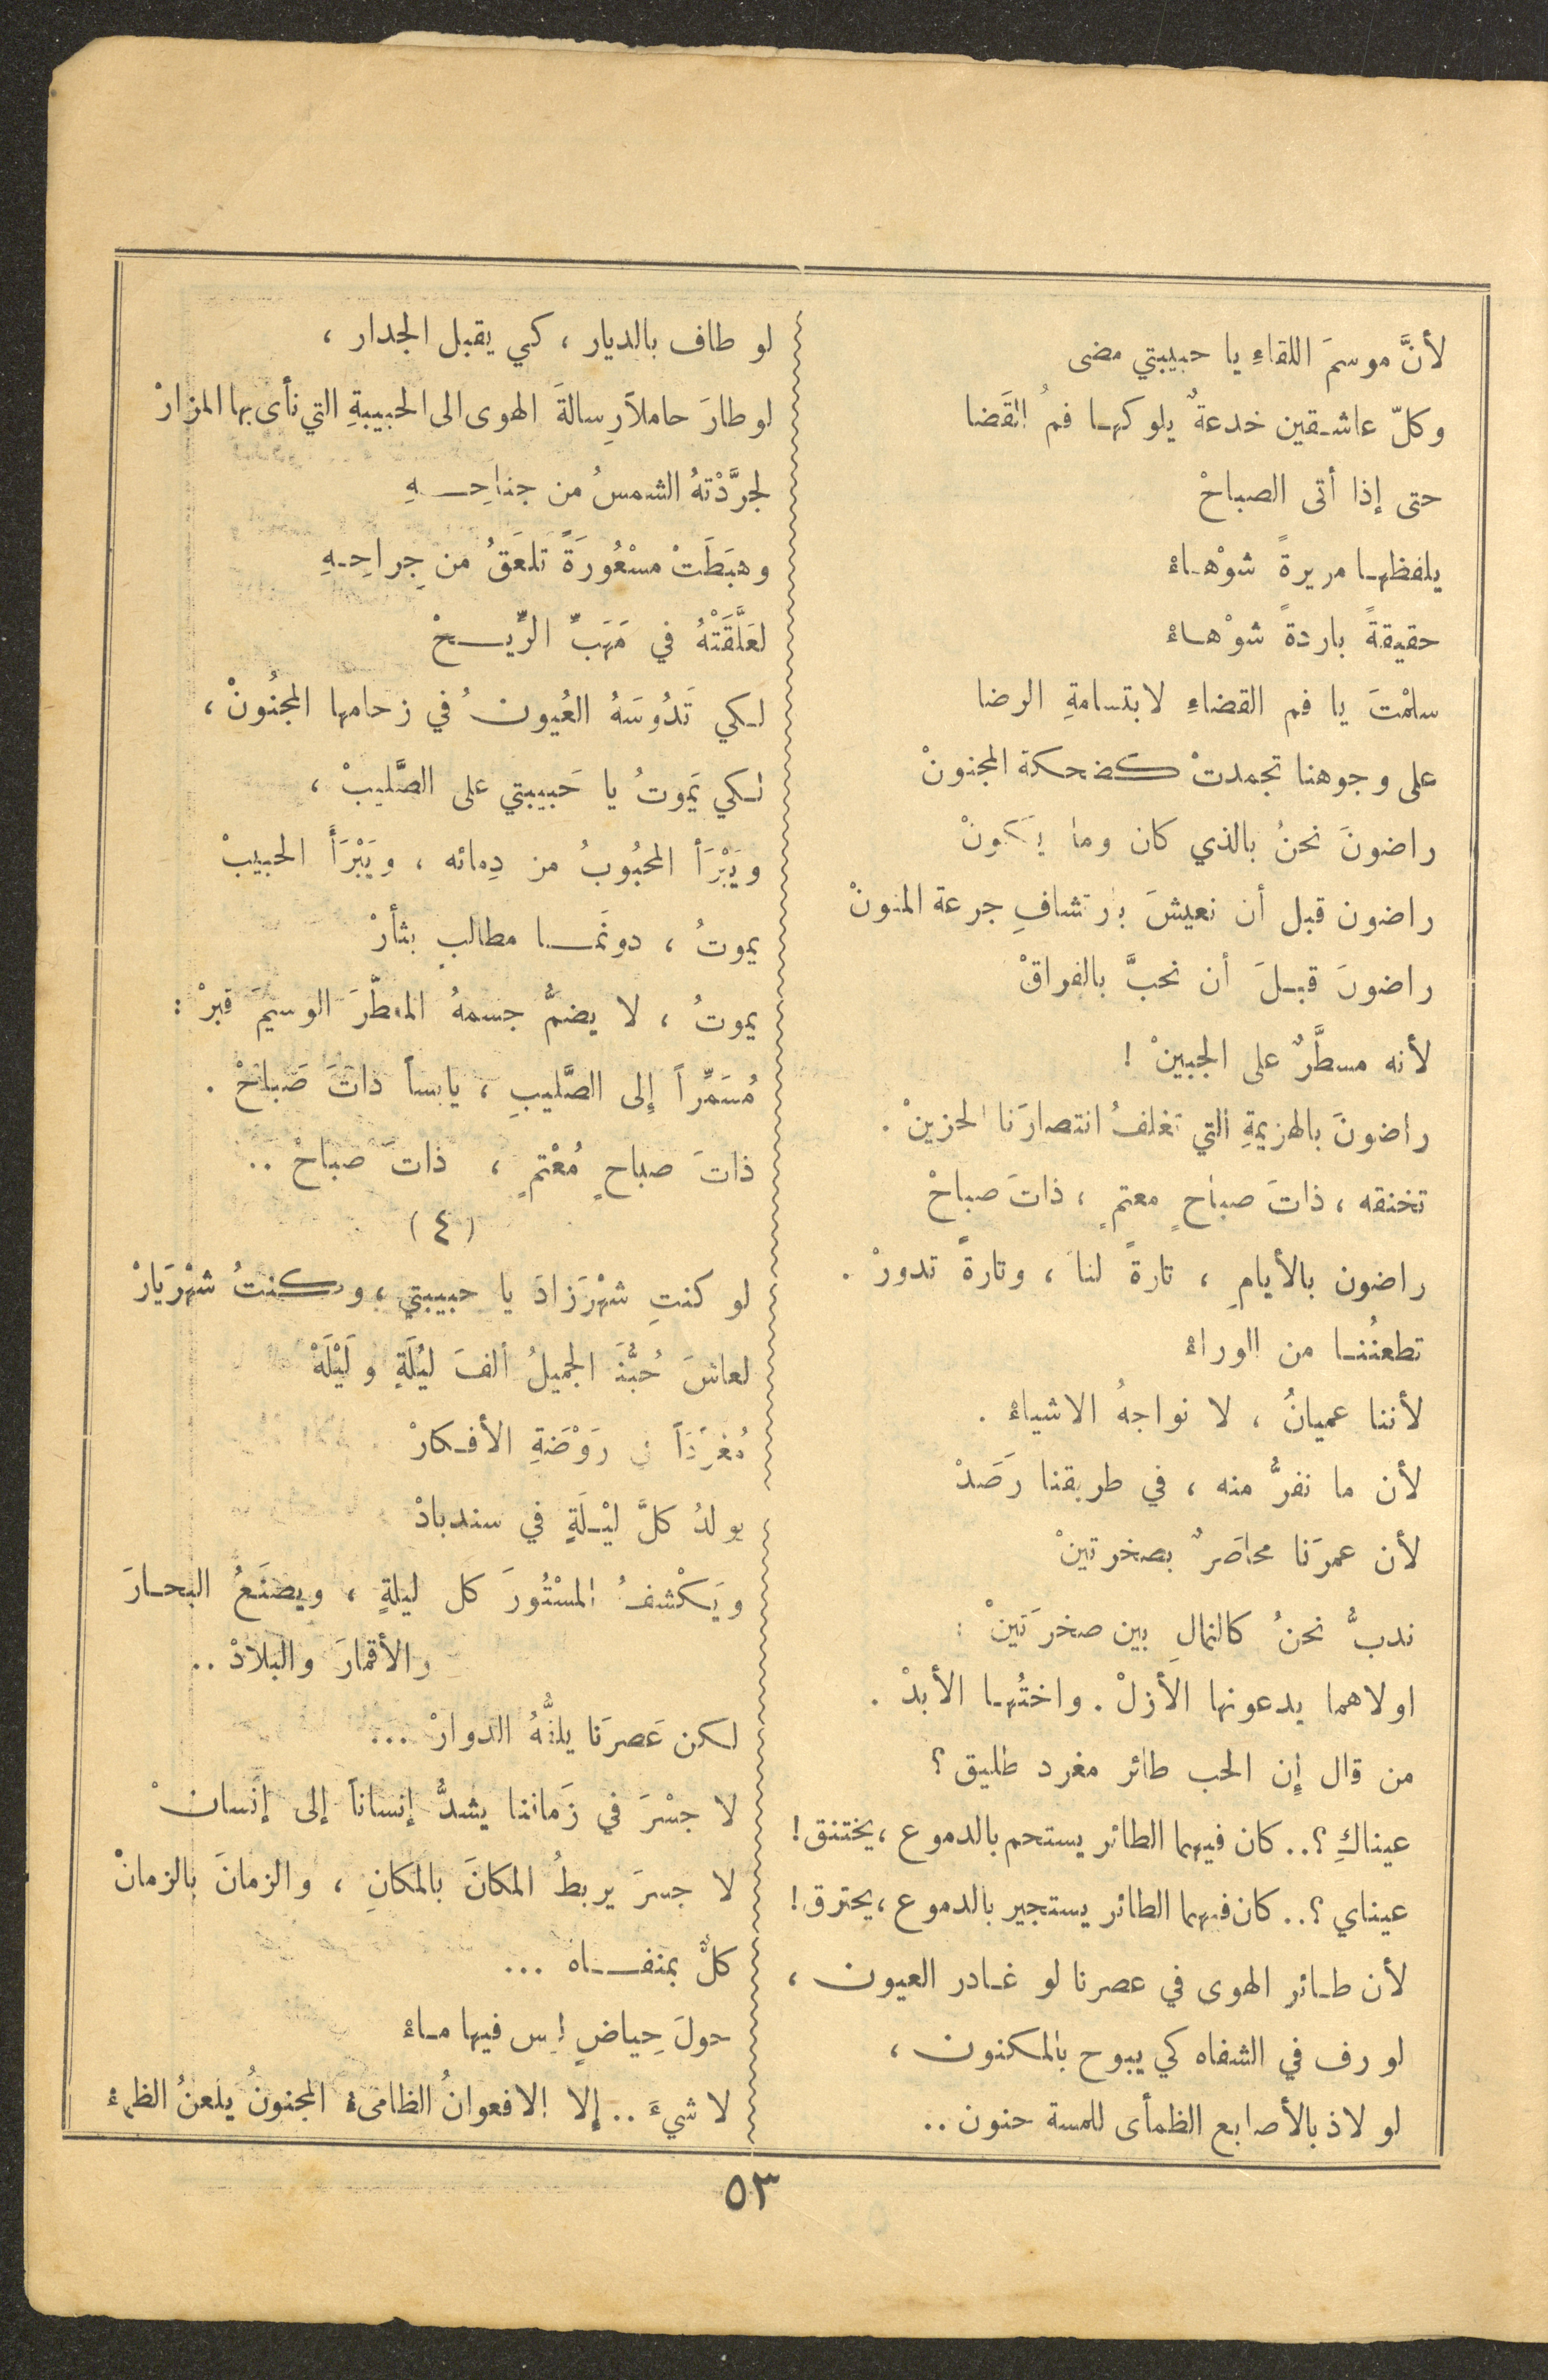 لأنَّ موسمَ اللقاءِ يا حبيبتي مضى
وكلّ عاشقين خدعةٌ يلوكها فمُ القَضا
حتى إذا أتى الصباحْ
يلفظها مريرةً شوْهاءْ
حقيقةً باردةً شوْهاءْ
سلمْتَ يا فم القضاءِ لابتسامةِ الرضا
على وجوهنا تجمدتْ كضحكة المجنونْ
راضونَ نحنُ بالذي كان وما يكونْ
راضون قبل أن نعيشَ بارتشافِ جرعة المنونْ
راضونَ قبلَ أن نحبَّ بالفراقْ
لأنه مسطَّرٌ على الجبينْ !
راضونَ بالهزيمةِ التي تغلفُ انتصارَنا الحزينْ .
تخنقه ، ذاتَ صباحٍ معتمٍ ، ذاتَ صباحْ
راضون بالأيامِ ، تارةً لنا ، وتارةً تدورْ .
تطعنُنا من الوراءْ
لأننا عميانُ ، لا نواجهُ الاشياءْ .
لأن ما نفرُّ منه ، في طريقنا رَصَدْ
لأن عمرَنا محاصَرٌ بصخرتينْ
ندبُّ نحنُ كالنمالِ بين صخرَتينْ :
اولاهما يدعونها الأزلْ . واختُها الأبدْ .
من قال إن الحب طائر مغرد طليق ؟
عيناكِ ؟.. كان فيهما الطائر يستحم بالدموع ، يختنق !
عيناي ؟.. كان فيهما الطائر يستجير بالدموع ، يحترق !
لأن طائر الهوى في عصرنا لو غادر العيون ،
لو رف في الشفاه كي يبوح بالمكنون ،
لو لاذ بالأصابع الظمأى للمسة حنون ..
لو طاف بالديار ، كي يقبل الجدار ،
لو طارَ حاملاً رسالةَ الهوى الى الحبيبةِ التي نأى بها المزارْ
لجرَّدْتهُ الشمسُ من جناحِهِ
وهبَطَتْ مسْعُورَةً تَلعَقُ من جِراحِهِ
لعَلَّقَتْهُ في مَهَبِّ الرِّيحْ
لكي تَدُوسَهُ العُيونُ في زحامها المجنُونْ ،
لكي يَموتُ يا حَبيبتي على الصَّليبْ ،
ويَبْرَأ المحبُوبُ من دِمائه ، ويَبْرَأ الحبيبْ
يموتُ ، دونَما مطالبٍ بثأرْ
يموتُ ، لا يضمُّ جسمهُ المطّرَ الوسيمَ قبرْ :
مُسَمَّراً إلى الصَّليبِ ، يابساً ذاتَ صَباحْ .
ذاتَ صباحٍ مُعْتمٍ ، ذاتَ صباحْ ..
( ٤ )
لو كنتِ شهْرَزادَ يا حبيبتي ، وكنتُ شهْرَيارْ
لعاشَ حُبُّنَا الجميلُ ألفَ ليْلَةٍ ولَيْلَهْ
مُغرِّدَاً في رَوْضَةِ الأفكارْ
يولدُ كلَّ ليْلَةٍ في سندبادْ
ويَكْشفُ المسْتُورَ كل ليلةٍ ، ويصنَعُ البحارَ
والأقمارَ والبلادْ ..
لكن عَصرَنا يلفُّهُ الدوارْ ...
لا جسْرَ في زَماننا يشدُّ إنساناً إلى إنْسانْ
لا جسرَ يربطُ المكانَ بالمكانِ ، والزمانَ بالزمانْ
كلٌّ بمنفاه ...
حولَ حِياضٍ ليس فيها ماءْ
لا شيءَ .. إلا الافعوانُ الظامىءُ المجنونُ يلعنُ الظمءْ
٥٣